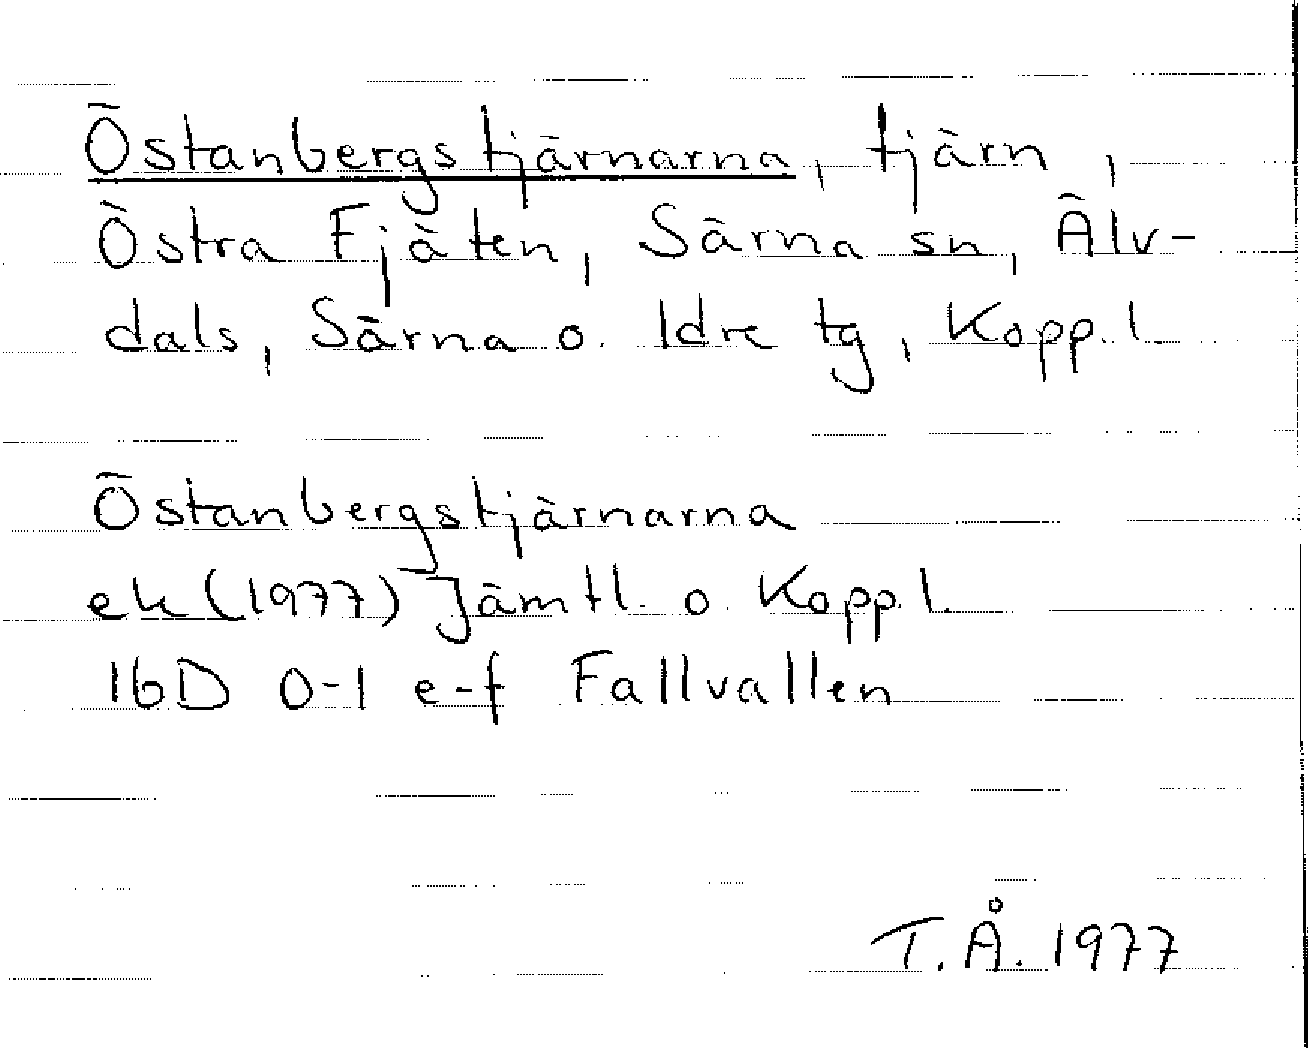 Östanbergstjärnarna, tjärn,
Östra Fjäten, Särna sn, Älv-
dals, Särna o. Idre tg, Kopp. l
Östanbergstjärnarna
ek (1977) Jämtl. o. Kopp. l.
16D 0-1 e-f Fallvallen
T.Å. 1977